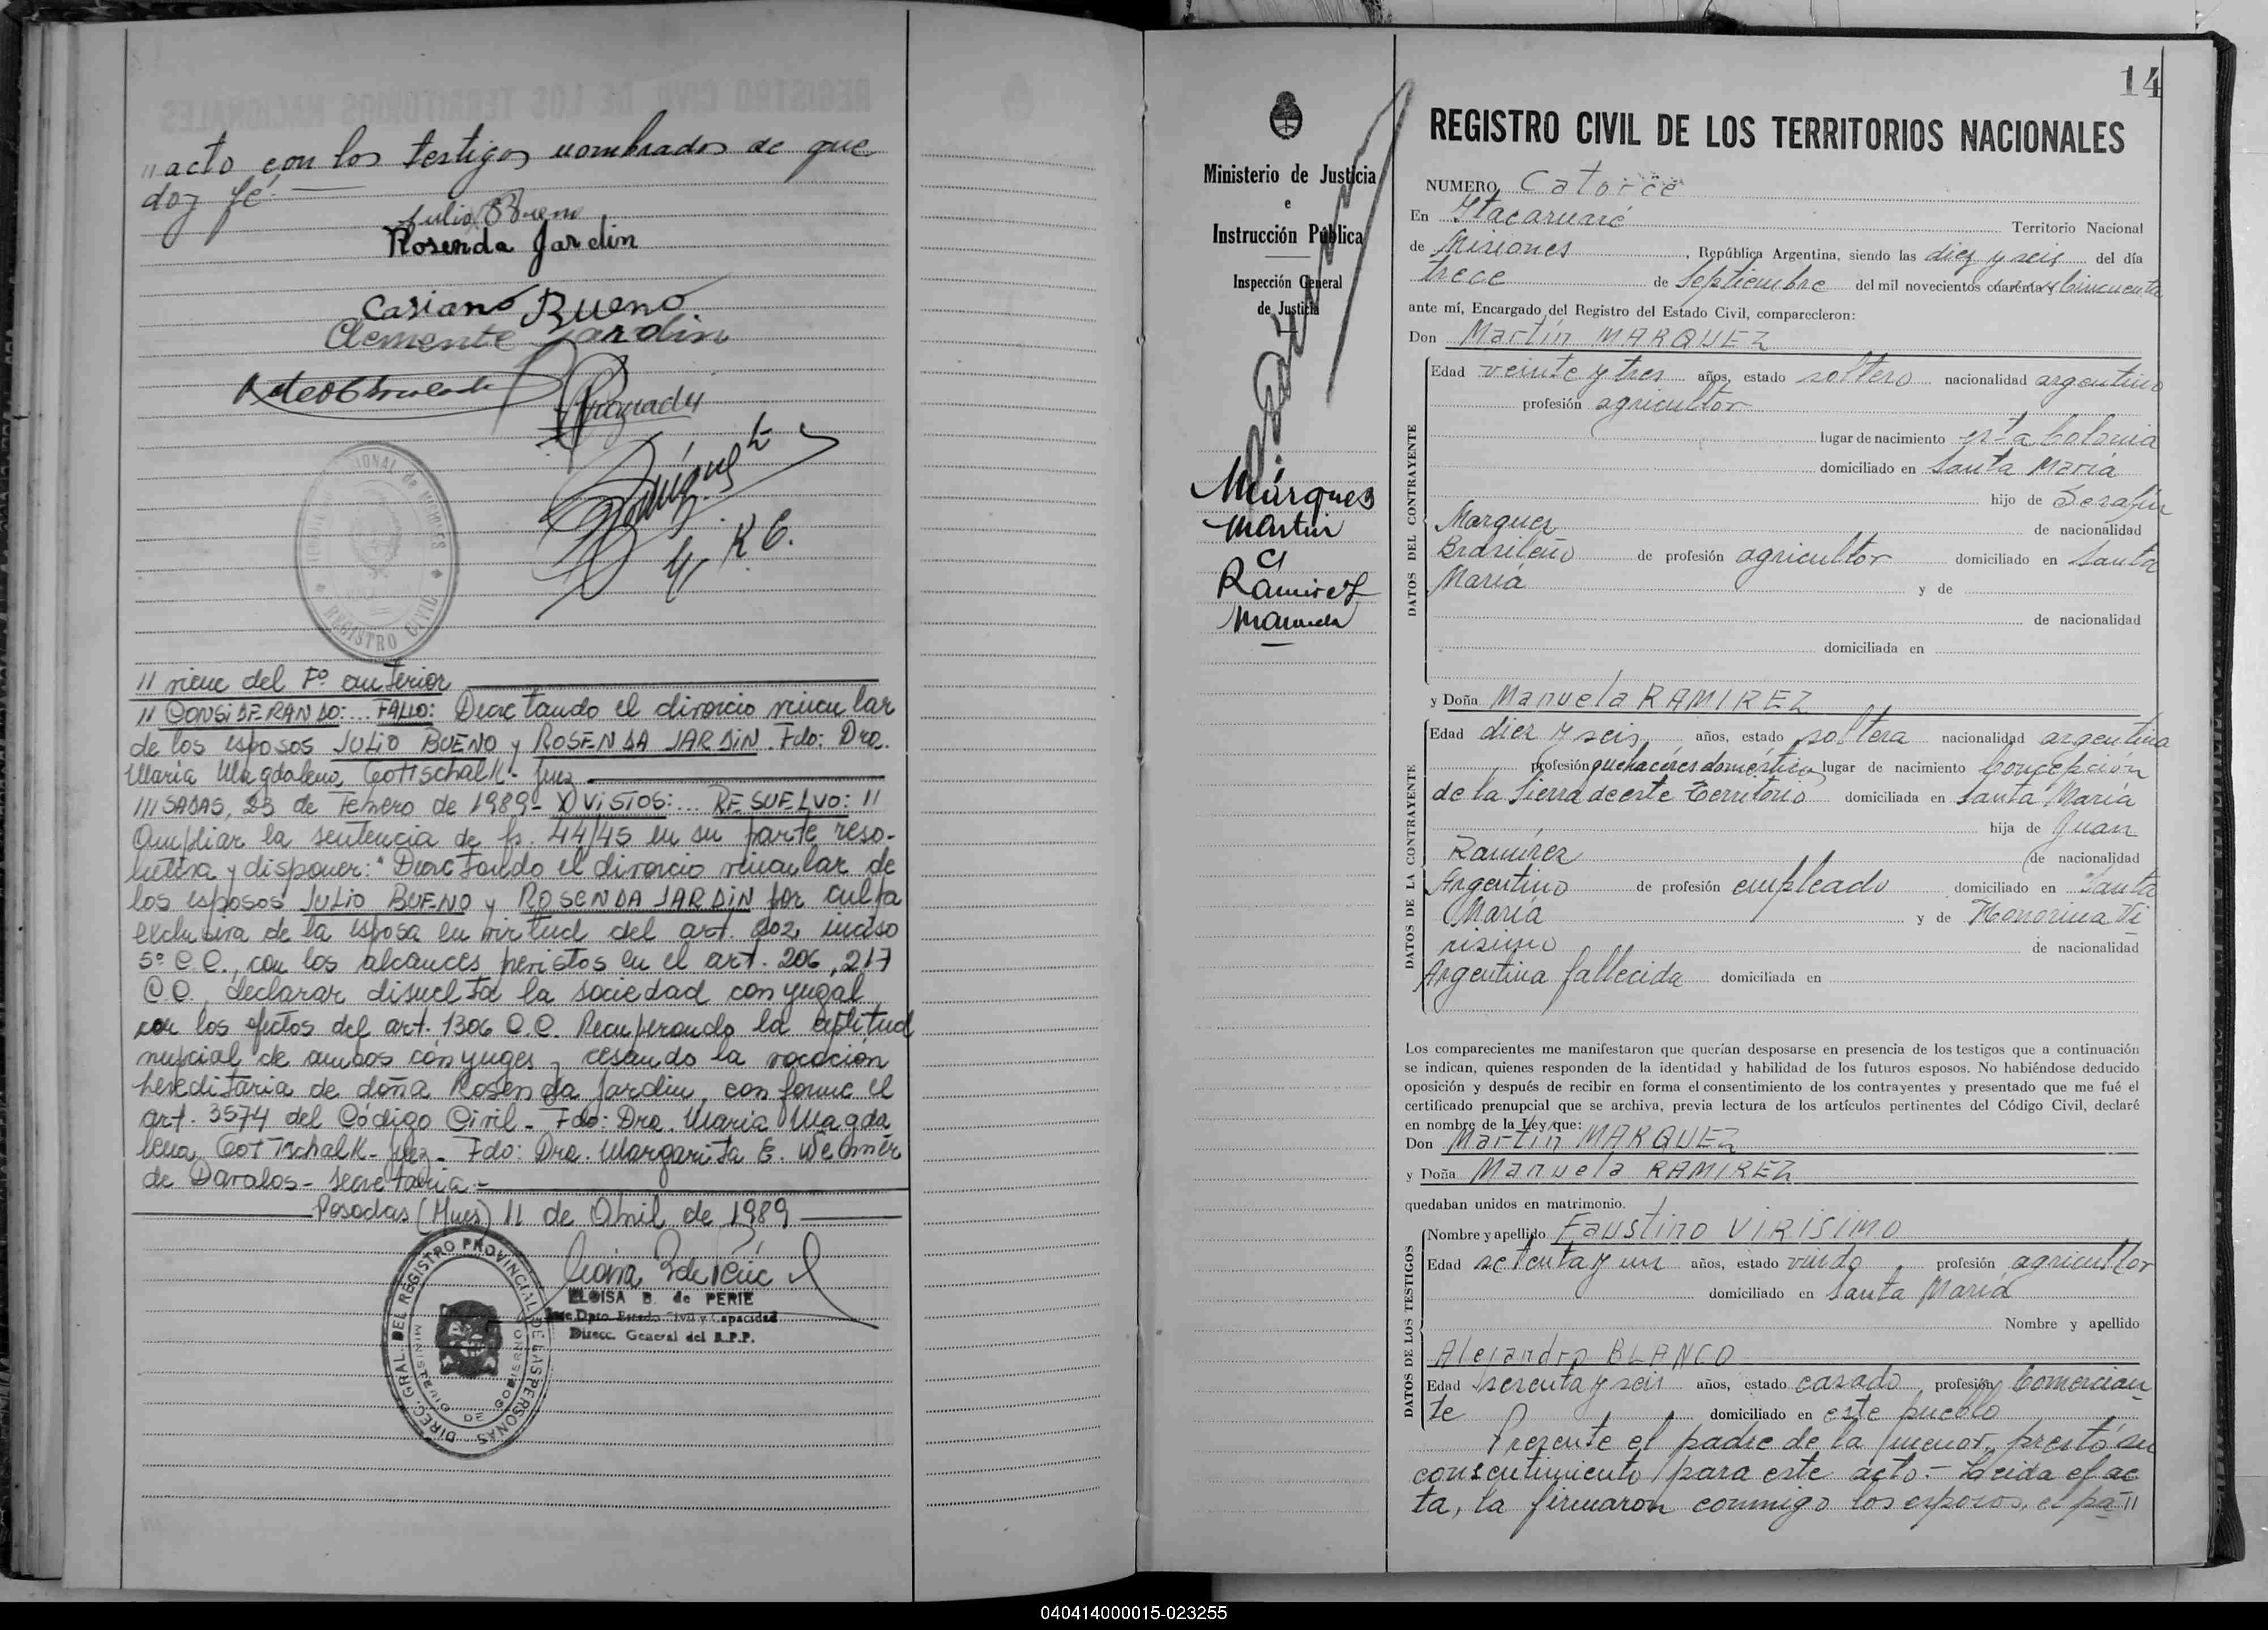 "acto con los testigos nombrados de que
doy fé.
Julio Bueno
Rosenda Jardin
Casiano Bueno
Clemente Jardin
REGISTRO CIVIL
" viene del Fº anterior
" CONSIDERANDO:... FALLO: Decretando el divorcio vincular
de los esposos JULIO BUENO y ROSENDA JARDIN. Fdo: Dra.
María Magdalena Gottschalk - Juez
/// SADAS, 23 de Febrero de 1989 - Y VISTOS:... RESUELVO: "
Ampliar la sentencia de fs. 44/45 en su parte reso-
lutiva y disponer: "Decretando el divorcio vincular de
los esposos JULIO BUENO y ROSENDA JARDIN por culpa
exclusiva de la esposa en virtud del art. 202 inciso
5º C.C., con los alcances previstos en el art. 206, 217
C.C. declarar disuelta la sociedad conyugal
con los efectos del art. 1306 C.C. Recuperando la aptitud
nupcial de ambos cónyuges y cesando la vocación
hereditaria de doña Rosenda Jardin, conforme el
art. 3574 del Código Civil - Fdo: Dra. María Magda
lena Gottschalk - Juez - Fdo: Dra. Margarita E. Wehner
de Davalos - secretaria -
Posadas (Mnes) 11 de Abril de 1989
ELOISA B. de PERIE
Jefe Dpto. Estado Civil y Capacidad
Direcc. General del R.P.P.
DIREC. GRAL. DEL REGISTRO PROVINCIAL DE LAS PERSONAS
MINISTERIO DE GOBIERNO
Ministerio de Justicia
e
Instrucción Pública
Inspección General
de Justicia
Márques
Martin
c/
Ramirez
Manuela
14
REGISTRO CIVIL DE LOS TERRITORIOS NACIONALES
NUMERO Catorce
En Itacaruaré Territorio Nacional
de Misiones, República Argentina, siendo las diez y seis del día
trece de Septiembre del mil novecientos cuarenta y Cincuenta
ante mí, Encargado del Registro del Estado Civil, comparecieron:
Don Martín MARQUEZ
DATOS DEL CONTRAYENTE
Edad veinte y tres años, estado soltero nacionalidad argentino
profesión agricultor
lugar de nacimiento esta Colonia
domiciliado en Santa María
hijo de Serafin
Marquez de nacionalidad
Brasileño de profesión agricultor domiciliado en Santa
María y de
de nacionalidad
domiciliada en
y Doña Manuela RAMIREZ
DATOS DE LA CONTRAYENTE
Edad diez y seis años, estado soltera nacionalidad argentina
profesión quehacéres doméstico lugar de nacimiento Concepción
de la Sierra de este Territorio domiciliada en Santa María
hija de Juan
Ramírez de nacionalidad
Argentino de profesión empleado domiciliado en Santa
María y de Honorina Vi
risimo de nacionalidad
Argentina fallecida domiciliada en
Los comparecientes me manifestaron que querían desposarse en presencia de los testigos que a continuación
se indican, quienes responden de la identidad y habilidad de los futuros esposos. No habiéndose deducido
oposición y después de recibir en forma el consentimiento de los contrayentes y presentado que me fué el
certificado prenupcial que se archiva, previa lectura de los artículos pertinentes del Código Civil, declaré
en nombre de la Ley que:
Don Martín MARQUEZ
y Doña Manuela RAMIREZ
quedaban unidos en matrimonio.
DATOS DE LOS TESTIGOS
Nombre y apellido Faustino VIRISIMO
Edad setenta y un años, estado viudo profesión agricultor
domiciliado en Santa María
Nombre y apellido
Alejandro BLANCO
Edad sesenta y seis años, estado casado, profesión Comercian
te domiciliado en este pueblo
Presente el padre de la menor, prestó su
consentimiento para este acto.- Leida el ac
ta, la firmaron conmigo los esposos, el pa "
040414000015-023255